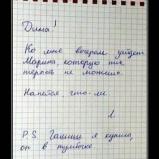 Дима!
Ко мне вчера уйдет
Марина, которую ты
терпеть не можешь.
Напейся, что-ли.
Л.
P.S. Гашиш я купила,
он в тумбочке